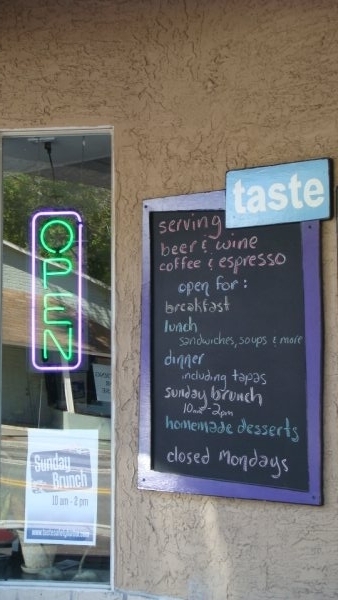 OPEN
Sunday
Brunch
10 am - 2 pm
taste
serving
beer & wine
coffee & espresso
open for:
breakfast
lunch
sandwiches, soups & more
dinner
including tapas
sunday brunch
10am-2pm
homemade desserts
closed Mondays